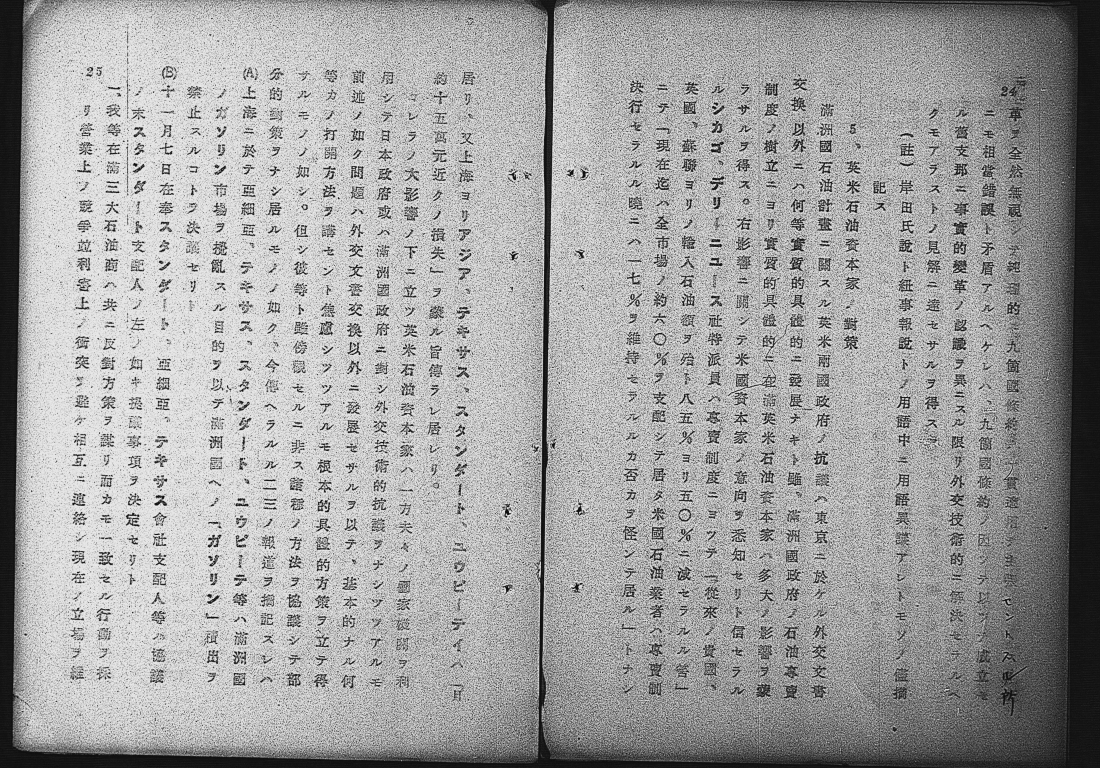 24
革ヲ全然無視シテ純理的ニ九箇國條約
ニモ相當錯誤ト矛盾アルヘケレハ、九箇國條約ノ因ツテ以ツテ成立セ
ル舊支那ニ事實的變革ノ認識ヲ異ニスル限リ外交技術的ニ解決セラルヘ
クモアラストノ見解ニ達セサルヲ得ス
(註) 岸田氏說ト紐事報說トノ用語中ニ用語異議アレトモソノ儘摘
記ス
5、英米石油資本家ノ對策
滿洲國石油計畫ニ關スル英米兩國政府ノ抗議ハ東京ニ於ケル外交文書
交換以外ニハ何等實質的具體的ニ發展ナキト雖、滿洲國政府ノ石油專賣
制度ノ樹立ニヨリ實質的具體的ニ在滿英米石油資本家ハ多大ノ影響ヲ蒙
ラサルヲ得ス。右影響ニ關シテ米國資本家ノ意向ヲ悉知セリト信セラル
ルシカゴ、デリーニユース社特派員ハ專賣制度ニヨツテ「從來ノ貴國、
英國、蘇聯ヨリノ輸入石油額ヲ殆ト八五%ヨリ五〇%ニ減セラルル筈」
ニテ「現在迄ハ全市場ノ約六〇%ヲ支配シテ居タ米國石油業者ハ專賣制
決行セラルル曉ニハ一七%ヲ維持セラルルカ否カヲ怪シテ居ル」トナシ
居リ、又上海ヨリアジア、テキサス、スタンダート、ユウピーテイハ「日
約十五萬元近クノ損失」ヲ蒙ル旨傳ラレ居レリ。
コレラノ大影響ノ下ニ立ツ英米石油資本家ハ一方夫々ノ國家機關ヲ利
用シテ日本政府或ハ滿洲國政府ニ對シ外交技術的抗議ヲナシツツアルモ
前述ノ如ク問題ハ外交文書交換以外ニ發展セサルヲ以テ、基本的ナル何
等カノ打開方法ヲ講セント焦慮シツツアルモ根本的具體的方策ヲ立テ得
サルモノノ如シ。但シ彼等ト雖傍觀セルニ非ス諸種ノ方法ヲ協議シテ部
分的對策ヲナシ居ルモノノ如ク、今傳ヘラルル二三ノ報道ヲ摘記スレハ
(A)上海ニ於テ亞細亞、テキサス、スタンダート、ユウピーテ等ハ滿洲國
ノガソリン市場ヲ攪亂スル目的ヲ以テ滿洲國ヘノ「ガソリン」積出ヲ
禁止スルコトヲ決議セリト
(B)十一月七日在奉スタンダート、亞細亞、テキサス會社支配人等ハ協議
ノ末スタンダート支配人ノ左ノ如キ提議事項ヲ決定セリト
一、我等在滿三大石油商ハ共ニ反對方策ヲ謀リ而カモ一致セル行動ヲ採
リ營業上ノ競爭竝利害上ノ衝突ヲ避ケ相互ニ連絡シ現在ノ立場ヲ維
25